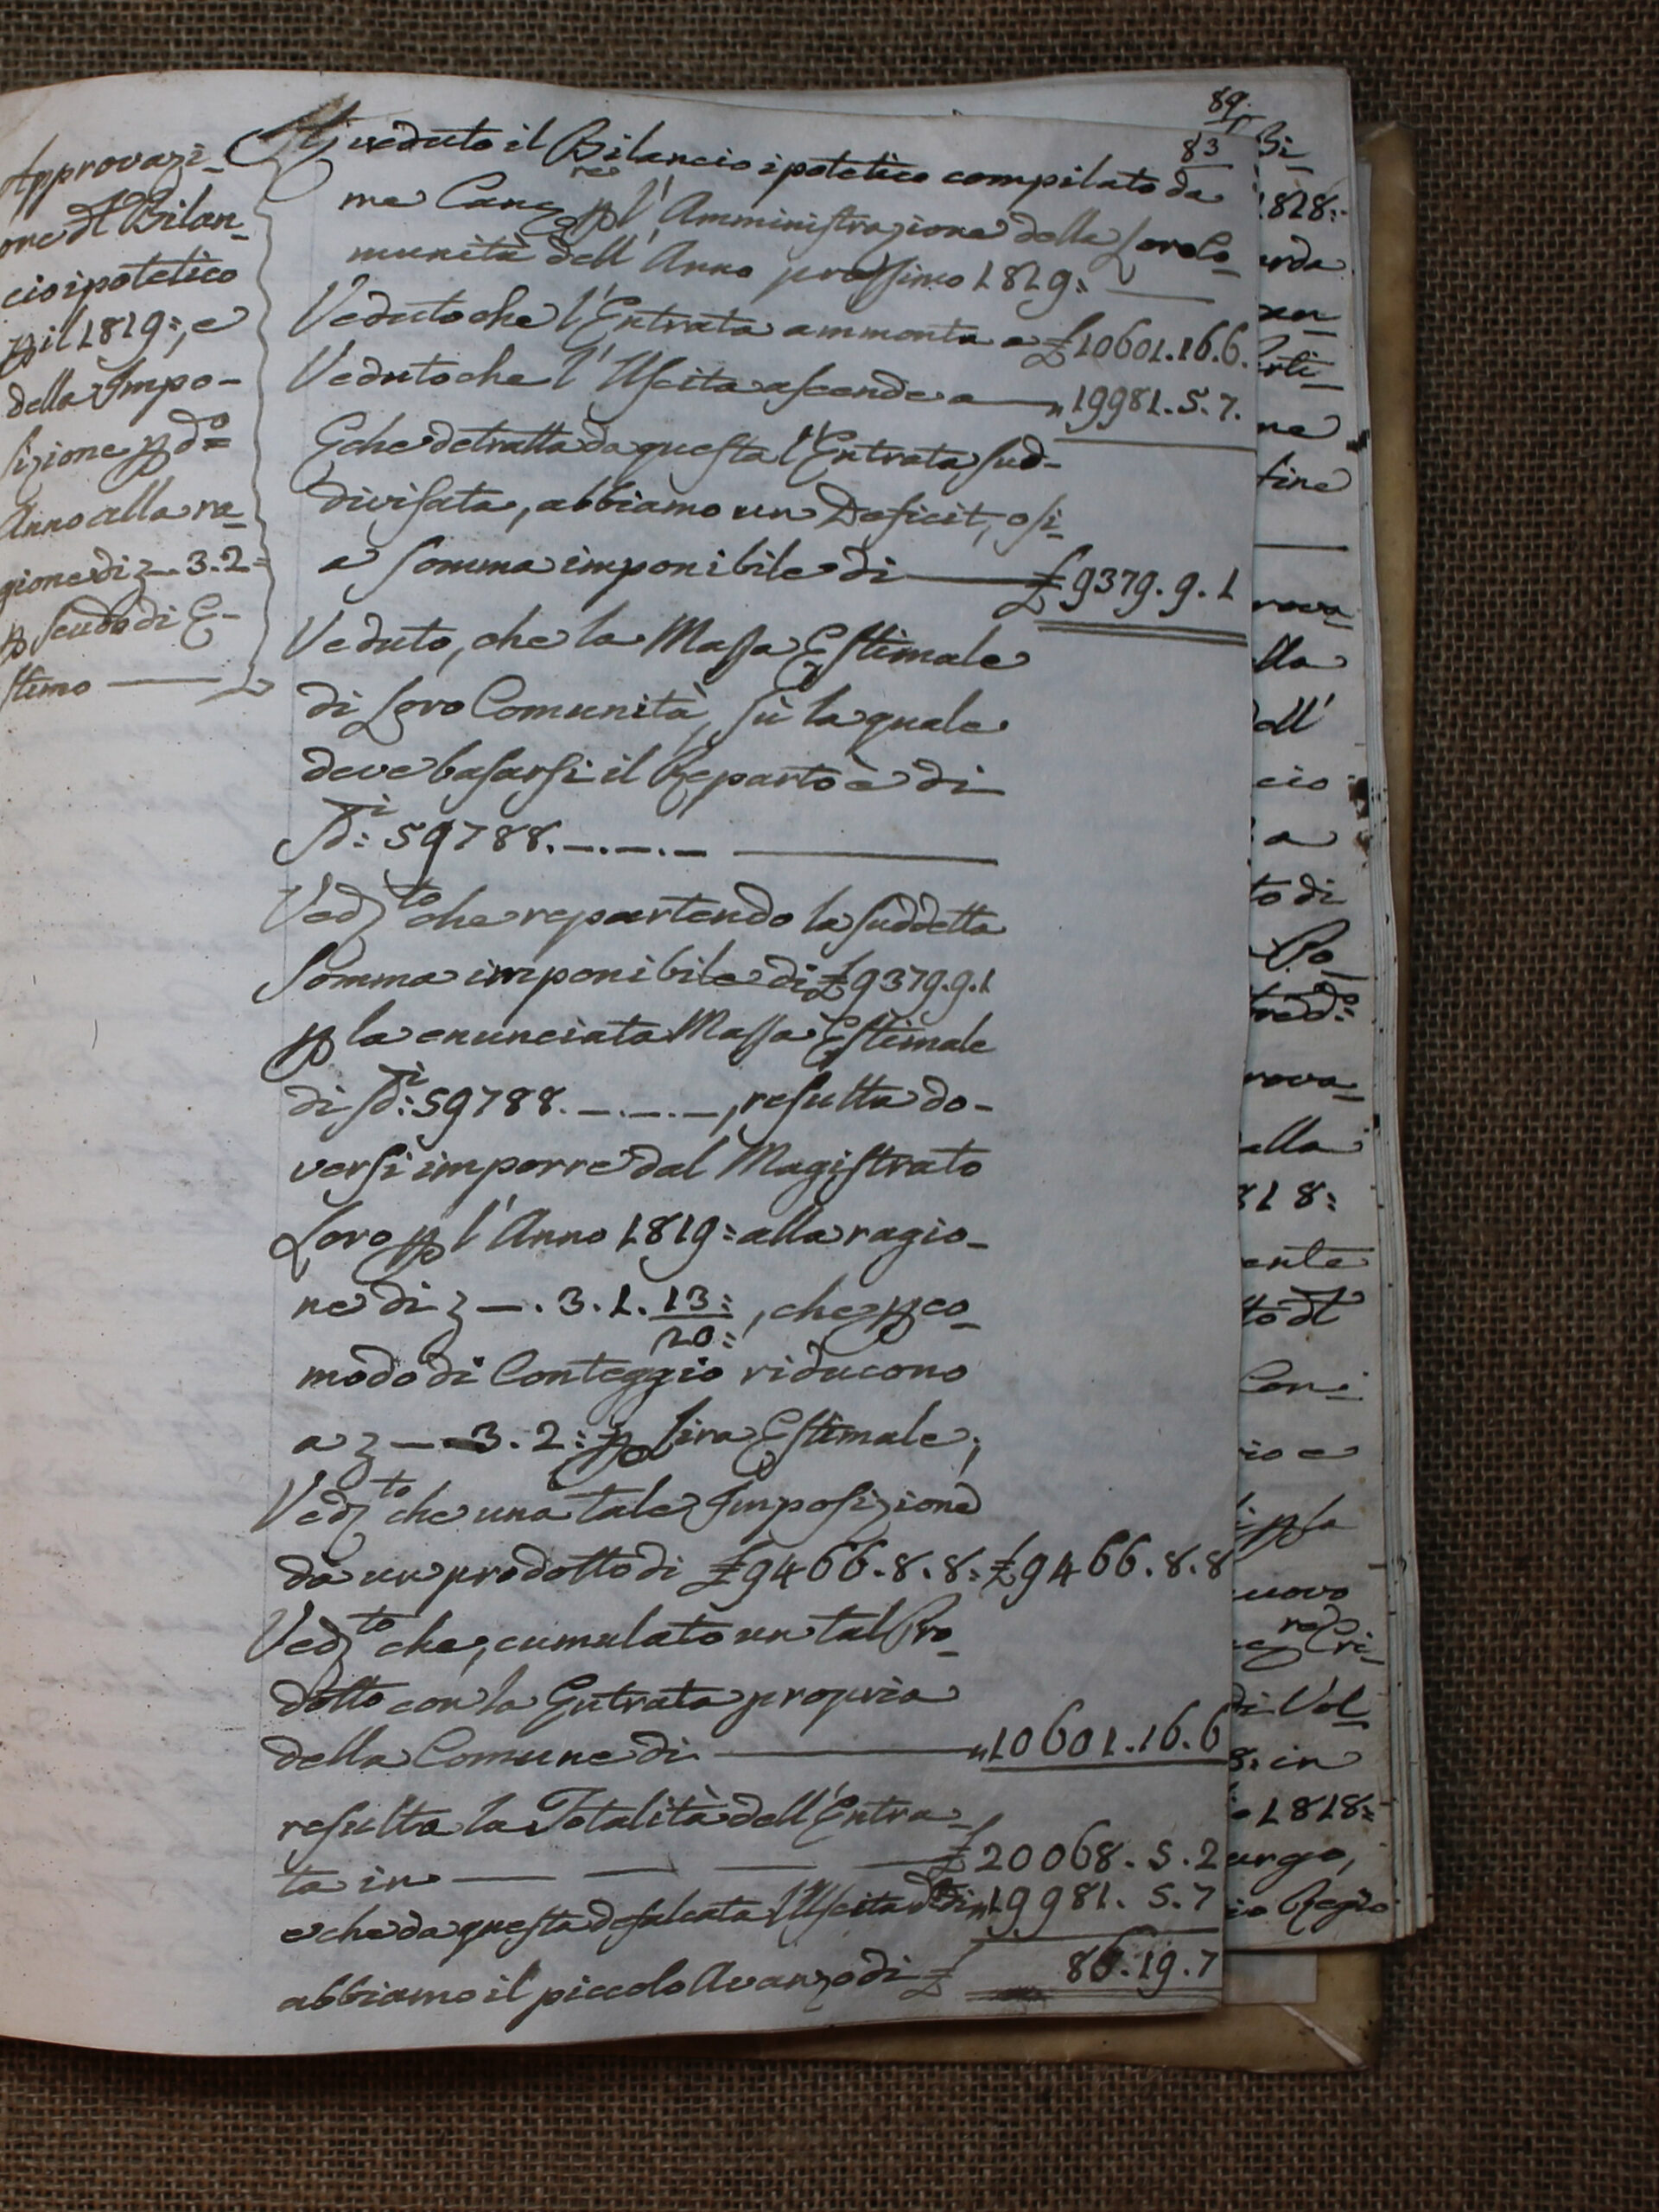 89.
83
Approvazi-
one d Bilan-
cio ipotetico
p il 1819:, e
della Impo-
sizione p do=
Anno alla ra-
gione di z —. 3. 2=
p scudo di E-
stimo
veduto il Bilancio ipotetico compilato da
me Cancre p l'Amministrazione della Loro Co-
munità dell'Anno prossimo 1819:
Veduto che l'Entrata ammonta a £ 10601. 16. 6.
Veduto che l'Uscita ascende a " 19981. 5. 7.
E che detratta da questa l'Entrata sud-
divisata, abbiamo un Deficit, o si-
a somma imponibile di £ 9379. 9. 1
Veduto, che la Massa Estimale
di Loro Comunità, sù la quale
deve basarsi il Reparto è di
Sdi: 59788. —. —. —
Vedto che repartendo la suddetta
Somma imponibile di £ 9379. 9. 1
p la enunciata Massa Estimale
di Sdi: 59788. —. —. —, resulta do-
versi imporre dal Magistrato
Loro p l'Anno 1819: alla ragio-
ne di z —. 3. 1. 13/20:, che p co-
modo di Conteggio riducono
a z — 3. 2: p Lira Estimale;
Vedto che una tale Imposizione
da un prodotto di £ 9466. 8. 8: £ 9466. 8. 8
Vedto che, cumulato un tal Pro-
dotto con la Entrata propria
della Comune di " 10601. 16. 6
resulta la Totalità dell'Entra-
ta in £ 20068. 5. 2
e che da questa defalcata l'Uscita di " 19981. 5. 7
abbiamo il piccolo Avanzo di £ 86. 19. 7